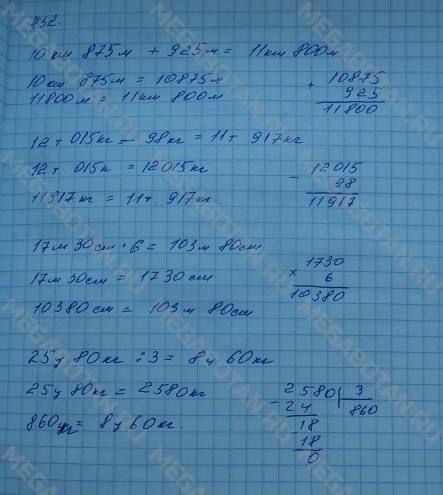 432.
10 км 875м + 925м = 11км 800м
10 км 875м = 10875м
11800м = 11км 800м
+ 10875
925
11800
12т 015кг - 98кг = 11т 917кг
12т 015к = 12015кг
11917кг = 11т. 917кг.
- 12015
98
11917
17м 30см · 6 = 103м 80см
17м 30см = 1730см
10380см = 103м 80см
1730
× 6
10380
25ц 80кг : 3 = 8ц 60кг
25ц 80кг = 2580кг
860кг = 8ц 60кг.
- 2580 3
24 860
18
- 18
0
MEGABOTAN.RU